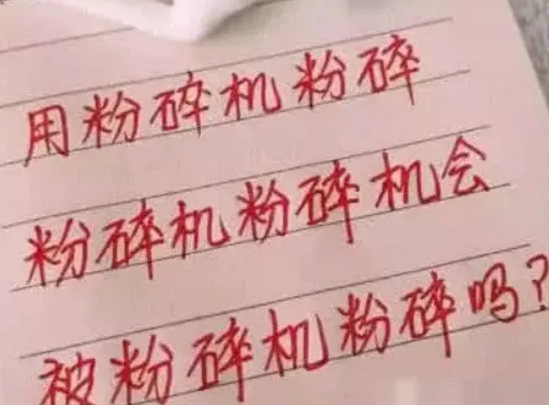 用粉碎机粉碎
粉碎机粉碎机会
被粉碎机粉碎吗?